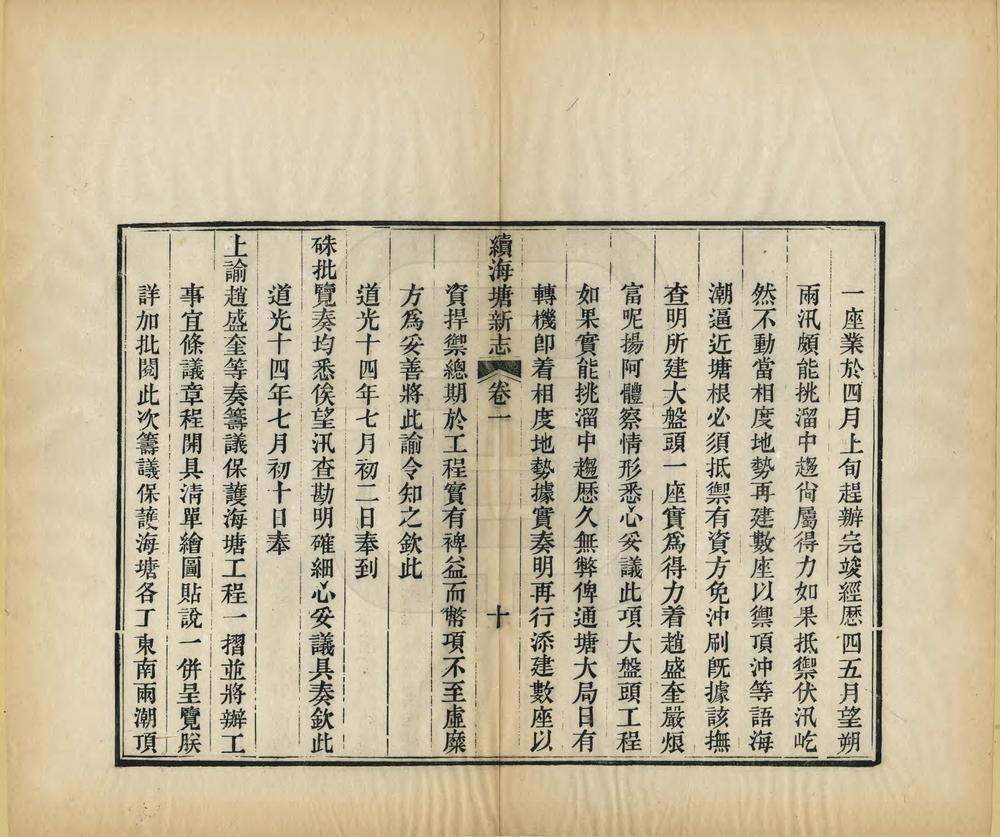 一座業於四月上旬趕辦完竣經歷四五月望朔
兩汛頗能挑溜中趨尙屬得力如果抵禦伏汛屹
然不動當相度地勢再建數座以禦頂沖等語海
潮逼近塘根必須抵禦有資方免沖刷旣據該撫
查明所建大盤頭一座實爲得力着趙盛奎嚴烺
富呢揚阿體察情形悉心妥議此項大盤頭工程
如果實能挑溜中趨歷久無弊俾通塘大局日有
轉機卽着相度地勢據實奏明再行添建數座以
續海塘新志 卷一 十
資捍禦總期於工程實有裨益而帑項不至虛糜
方爲妥善將此諭令知之欽此
道光十四年七月初二日奉到
硃批覽奏均悉俟望汛查勘明確細心妥議具奏欽此
道光十四年七月初十日奉
上諭趙盛奎等奏籌議保護海塘工程一摺並將辦工
事宜條議章程開具淸單繪圖貼說一併呈覽朕
詳加批閱此次籌議保護海塘各工東南兩潮頂